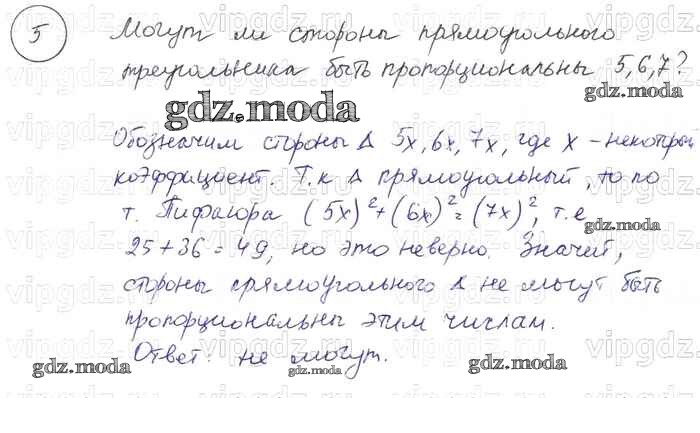 5
Могут ли стороны прямоугольного
треугольника быть пропорциональны 5,6,7?
gdz.moda
Обозначим стороны Δ 5x, 6x, 7x, где x – некоторый
коэффициент. Т.к Δ прямоугольный, то по
т. Пифагора (5x)²+(6x)²=(7x)², т.е
gdz.moda
25+36=49, но это неверно. Значит,
стороны прямоугольного Δ не могут быть
пропорциональны этим числам.
Ответ: не могут.
gdz.moda
gdz.moda
gdz.moda